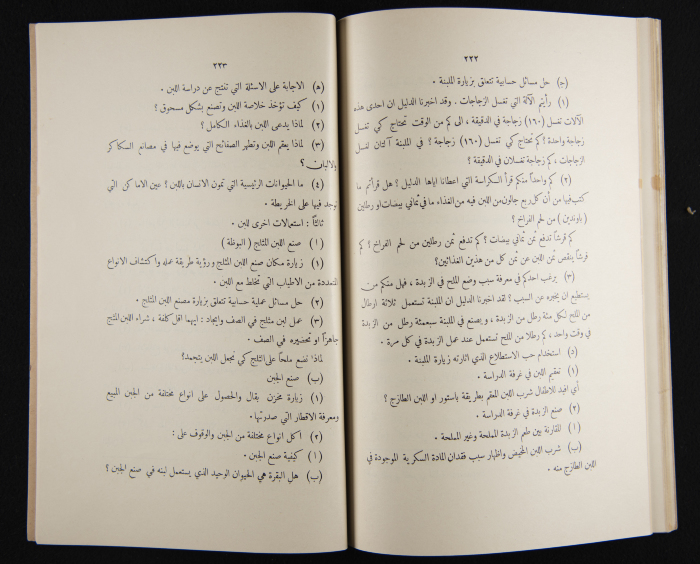 ٢٢٢
(ج) حل مسائل حسابية تتعلق بزيارة الملبنة .
(١) رأيتم الآلة التي تغسل الزجاجات . وقد اخبرنا الدليل ان احدى هذه
الآلات تغسل (١٦٠) زجاجة في الدقيقة ، الى كم من الوقت تحتاج كي تغسل
زجاجة واحدة ؟ كم تحتاج كي تغسل (١٦٠) زجاجة ؟ في الملبنة آلتان لغسل
الزجاجات ، كم زجاجة تغسلان في الدقيقة ؟
(٢) كم واحداً منكم قرأ الكراسة التي اعطانا اياها الدليل ؟ هل قرأتم ما
كتب فيها من أن كل ربع جالون من اللبن فيه من الغذاء ما في ثماني بيضات او رطلين
(باوندين) من لحم الفراخ ؟
كم قرشاً تدفع ثمن ثماني بيضات ؟ كم تدفع ثمن رطلين من لحم الفراخ ؟ كم
قرشاً ينقص ثمن اللبن عن ثمن كل من هذين الغذائين؟
(٣) يرغب احدكم في معرفة سبب وضع الملح في الزبدة ، فهل منكم من
يستطيع ان يخبره عن السبب ؟ لقد اخبرنا الدليل ان الملبنة تستعمل ثلاثة ارطال
من الملح لكل مئة رطل من الزبدة ، ويصنع في الملبنة سبعمئة رطل من الزبدة
في وقت واحد ، كم رطلا من الملح تستعمل عند عمل الزبدة في كل مرة .
(د) استخدام حب الاستطلاع الذي اثارته زيارة الملبنة .
(١) تعقيم اللبن في غرفة الدراسة .
أي افيد للاطفال شرب اللبن المعقم بطريقة باستور او اللبن الطازج ؟
(٢) صنع الزبدة في غرفة الدراسة .
(أ) المقارنة بين طعم الزبدة المملحة وغير المملحة .
(ب) شرب اللبن المخيض واظهار سبب فقدان المادة السكرية الموجودة في
اللبن الطازج منه .
٢٢٣
(ه) الاجابة على الاسئلة التي تنتج عن دراسة اللبن .
(١) كيف تؤخذ خلاصة اللبن وتصنع بشكل مسحوق ؟
(٢) لماذا يدعى اللبن بالغذاء الكامل ؟
(٣) لماذا يعقم اللبن وتطهر الصفائح التي يوضع فيها في مصانع السكاكر
والالبان ؟
(٤) ما الحيوانات الرئيسية التي تمون الانسان باللبن ؟ عين الاماكن التي
توجد فيها على الخريطة .
ثالثاً : استعمالات اخرى للبن .
(أ) صنع اللبن المثلج (البوظة)
(١) زيارة مكان صنع اللبن المثلج ورؤية طريقة عمله واكتشاف الانواع
المتعددة من الاطياب التي تخلط مع اللبن .
(٢) حل مسائل عملية حسابية تتعلق بزيارة مصنع اللبن المثلج .
(٣) عمل لبن مثلج في الصف وايجاد : ايهما اقل كلفة ، شراء اللبن المثلج
جاهزاً او تحضيره في الصف .
لماذا نضع ملحاً على الثلج كي نجعل اللبن يتجمد؟
(ب) صنع الجبن
(١) زيارة مخزن بقال والحصول على انواع مختلفة من الجبن المبيع
ومعرفة الاقطار التي صدرتها .
(٢) اكل انواع مختلفة من الجبن والوقوف على :
(أ) كيفية صنع الجبن .
(ب) هل البقرة هي الحيوان الوحيد الذي يستعمل لبنه في صنع الجبن ؟